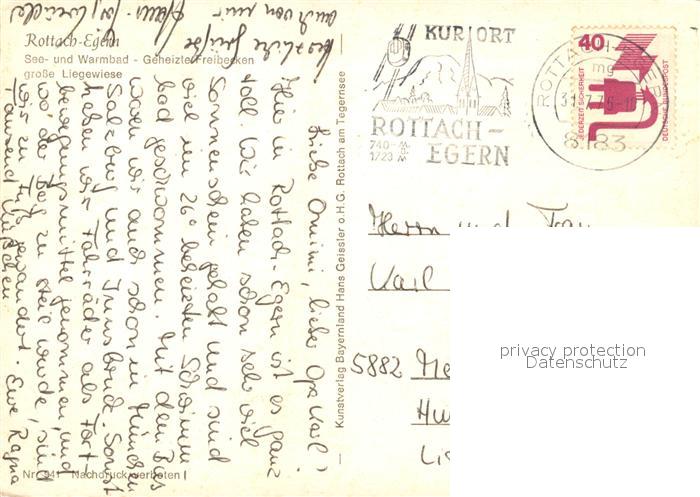 Rottach-Egern
See- und Warmbad - Geheizte Freibecken
große Liegewiese
Liebe Omimi, lieber Opa Karl!
Hier in Rottach-Egern ist es ganz
toll. Wir haben schon sehr viel
Sonnenschein gehabt und sind
viel im 26° beheizten Schwimm
bad geschwommen. Mit dem Bus
waren wir auch schon in München
Salzburg und Innsbruck. Sonst
haben wir Fahrräder als Fort-
bewegungsmittel genommen, und
wo der Berg zu steil wurde, sind
wir zu Fuß gewandert.
Tausend Küßchen Eure Ragna
herzliche Grüße
auch von mir
Nr. 941 Nachdruck verboten!
Kunstverlag Bayernland Hans Geissler o.H.G. Rottach am Tegernsee
KURORT
ROTTACH-
EGERN
740-
1723 M
ROTTACH-EGERN
mg
31.7.76
8183
40
JEDERZEIT SICHERHEIT
DEUTSCHE BUNDESPOST
Herrn und Frau
Karl
5882
privacy protection
Datenschutz